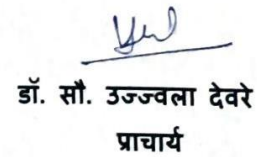 डॉ. सौ. उज्ज्वला देवरे
प्राचार्य